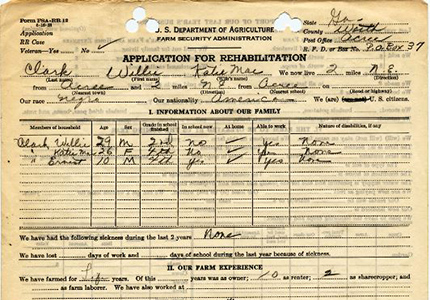 Form FSA-RR 13
Application
RR Case
Veteran—Yes No
U. S. DEPARTMENT OF AGRICULTURE
FARM SECURITY ADMINISTRATION
State Ga.
County Worth
Post Office Acree
R. F. D. or Box No. P.O. Box 37
APPLICATION FOR REHABILITATION
Clark Willie Katie Mae We now live 2 miles N.E.
from Acree and 2 miles N from Acree on
(Nearest town) (Direction) (Road or highway)
Our race Negro Our nationality America We (are) U. S. citizens.
I. INFORMATION ABOUT OUR FAMILY
Members of household Age Sex Grade in school finished In school now Able to work Nature of disabilities, if any
Clark, Willie 29 M 2nd no yes None
" Katie Mae 26 F 4th No yes None
" Ernest 10 M 4th yes yes
We have had the following sickness during the last 2 years None
We have lost days of work and days of school during the last year because of sickness.
II. OUR FARM EXPERIENCE
We have farmed for years. Of this years was as owner; 10 as renter; 2 as sharecropper; and
as farm laborer. We have also worked at